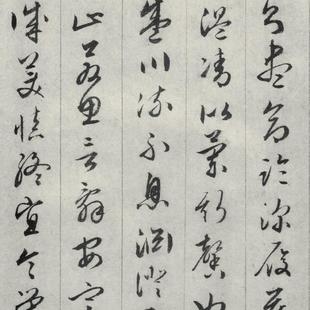 則盡命臨深履薄
溫凊似蘭斯馨如
盛川流不息淵澄
止若思言辭安定
誠美慎終宜令榮